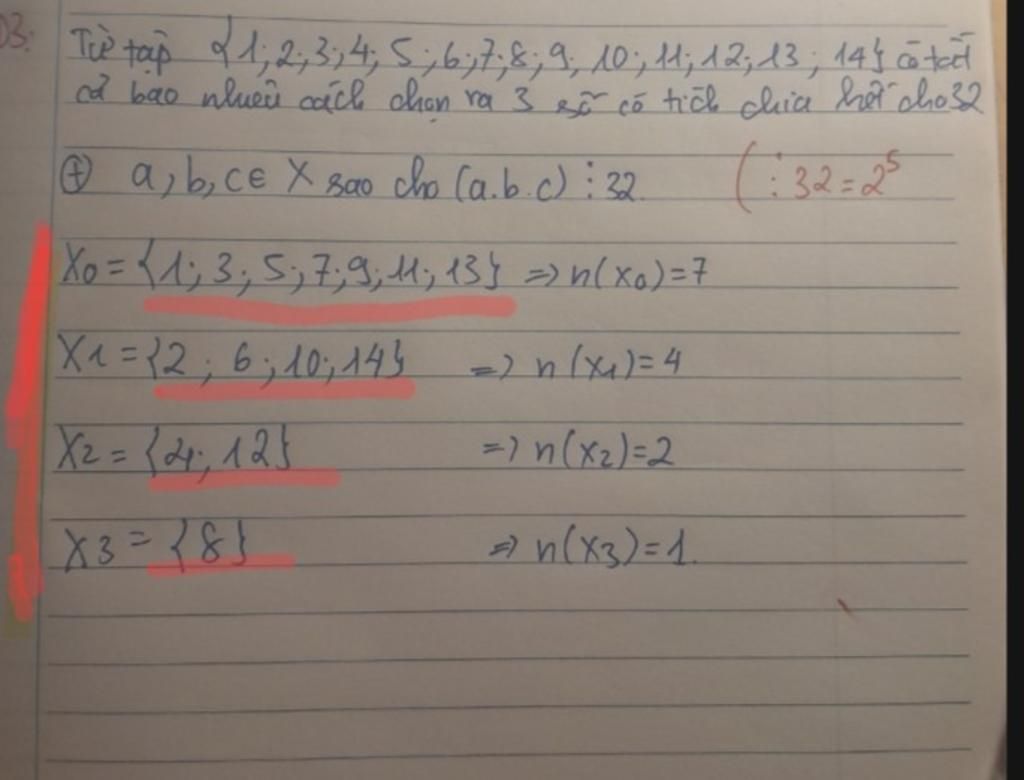 03:
Từ tập {1; 2; 3; 4; 5; 6; 7; 8; 9; 10; 11; 12; 13; 14} có tất
cả bao nhiêu cách chọn ra 3 số có tích chia hết cho 32
⊕ a, b, c ∈ X sao cho (a.b.c) ⋮ 32. ( ⋮ 32 = 2⁵
X0 = {1; 3; 5; 7; 9; 11; 13} => n(x0) = 7
X1 = {2; 6; 10; 14} => n(x1) = 4
X2 = {4; 12} => n(x2) = 2
X3 = {8} => n(x3) = 1.